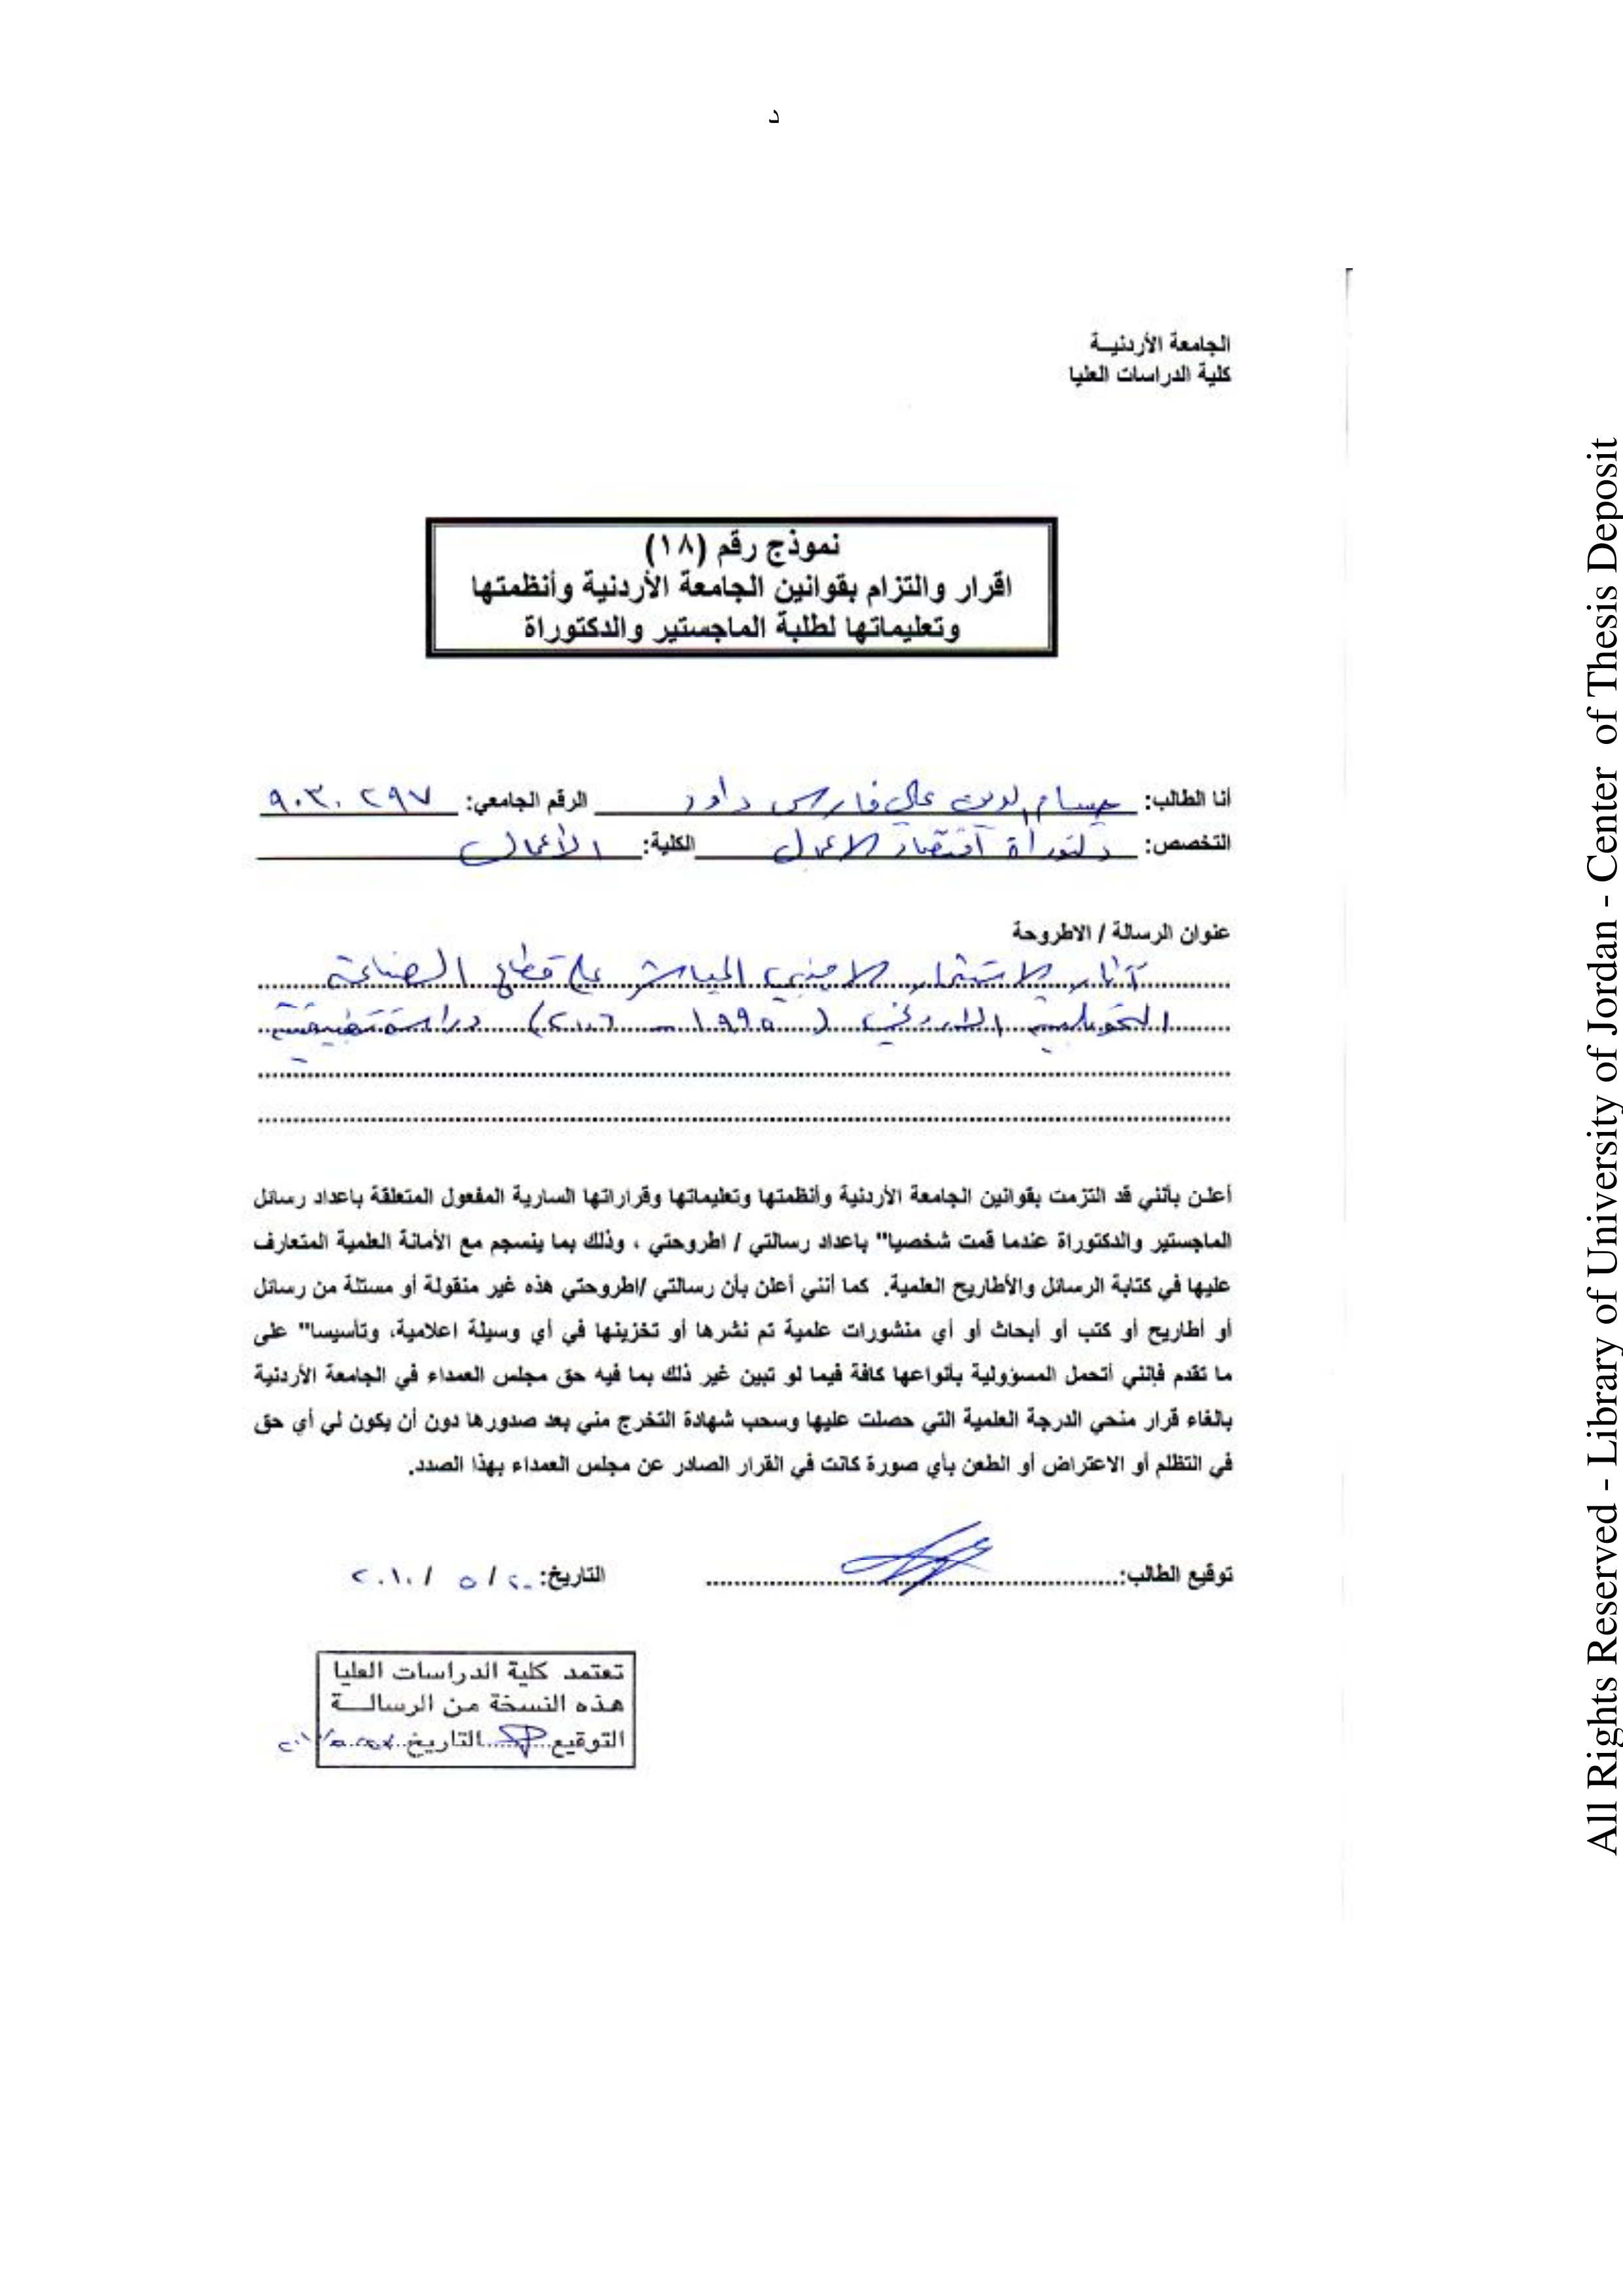 د
الجامعة الأردنيـة
كلية الدراسات العليا
نموذج رقم (١٨)
اقرار والتزام بقوانين الجامعة الأردنية وأنظمتها
وتعليماتها لطلبة الماجستير والدكتوراة
أنا الطالب: حسام الدين علي فارس داود الرقم الجامعي: ٩٠٣٠٢٩٧
التخصص: دكتوراة اقتصاد الاعمال الكلية: الأعمال
عنوان الرسالة / الاطروحة
آثار الاستثمار الاجنبي المباشر على قطاع الصناعة
التحويلية الاردني (١٩٩٥ - ٢٠٠٦) دراسة تطبيقية
أعلن بأنني قد التزمت بقوانين الجامعة الأردنية وأنظمتها وتعليماتها وقراراتها السارية المفعول المتعلقة باعداد رسائل
الماجستير والدكتوراة عندما قمت شخصيا" باعداد رسالتي / اطروحتي ، وذلك بما ينسجم مع الأمانة العلمية المتعارف
عليها في كتابة الرسائل والأطاريح العلمية. كما أنني أعلن بأن رسالتي /اطروحتي هذه غير منقولة أو مستلة من رسائل
أو أطاريح أو كتب أو أبحاث أو أي منشورات علمية تم نشرها أو تخزينها في أي وسيلة اعلامية، وتأسيسا" على
ما تقدم فإنني أتحمل المسؤولية بأنواعها كافة فيما لو تبين غير ذلك بما فيه حق مجلس العمداء في الجامعة الأردنية
بالغاء قرار منحي الدرجة العلمية التي حصلت عليها وسحب شهادة التخرج مني بعد صدورها دون أن يكون لي أي حق
في التظلم أو الاعتراض أو الطعن بأي صورة كانت في القرار الصادر عن مجلس العمداء بهذا الصدد.
توقيع الطالب: التاريخ: ٢٠ / ٥ / ٢٠١٠
تعتمد كلية الدراسات العليا
هذه النسخة من الرسالـــة
التوقيع التاريخ
All Rights Reserved - Library of University of Jordan - Center of Thesis Deposit